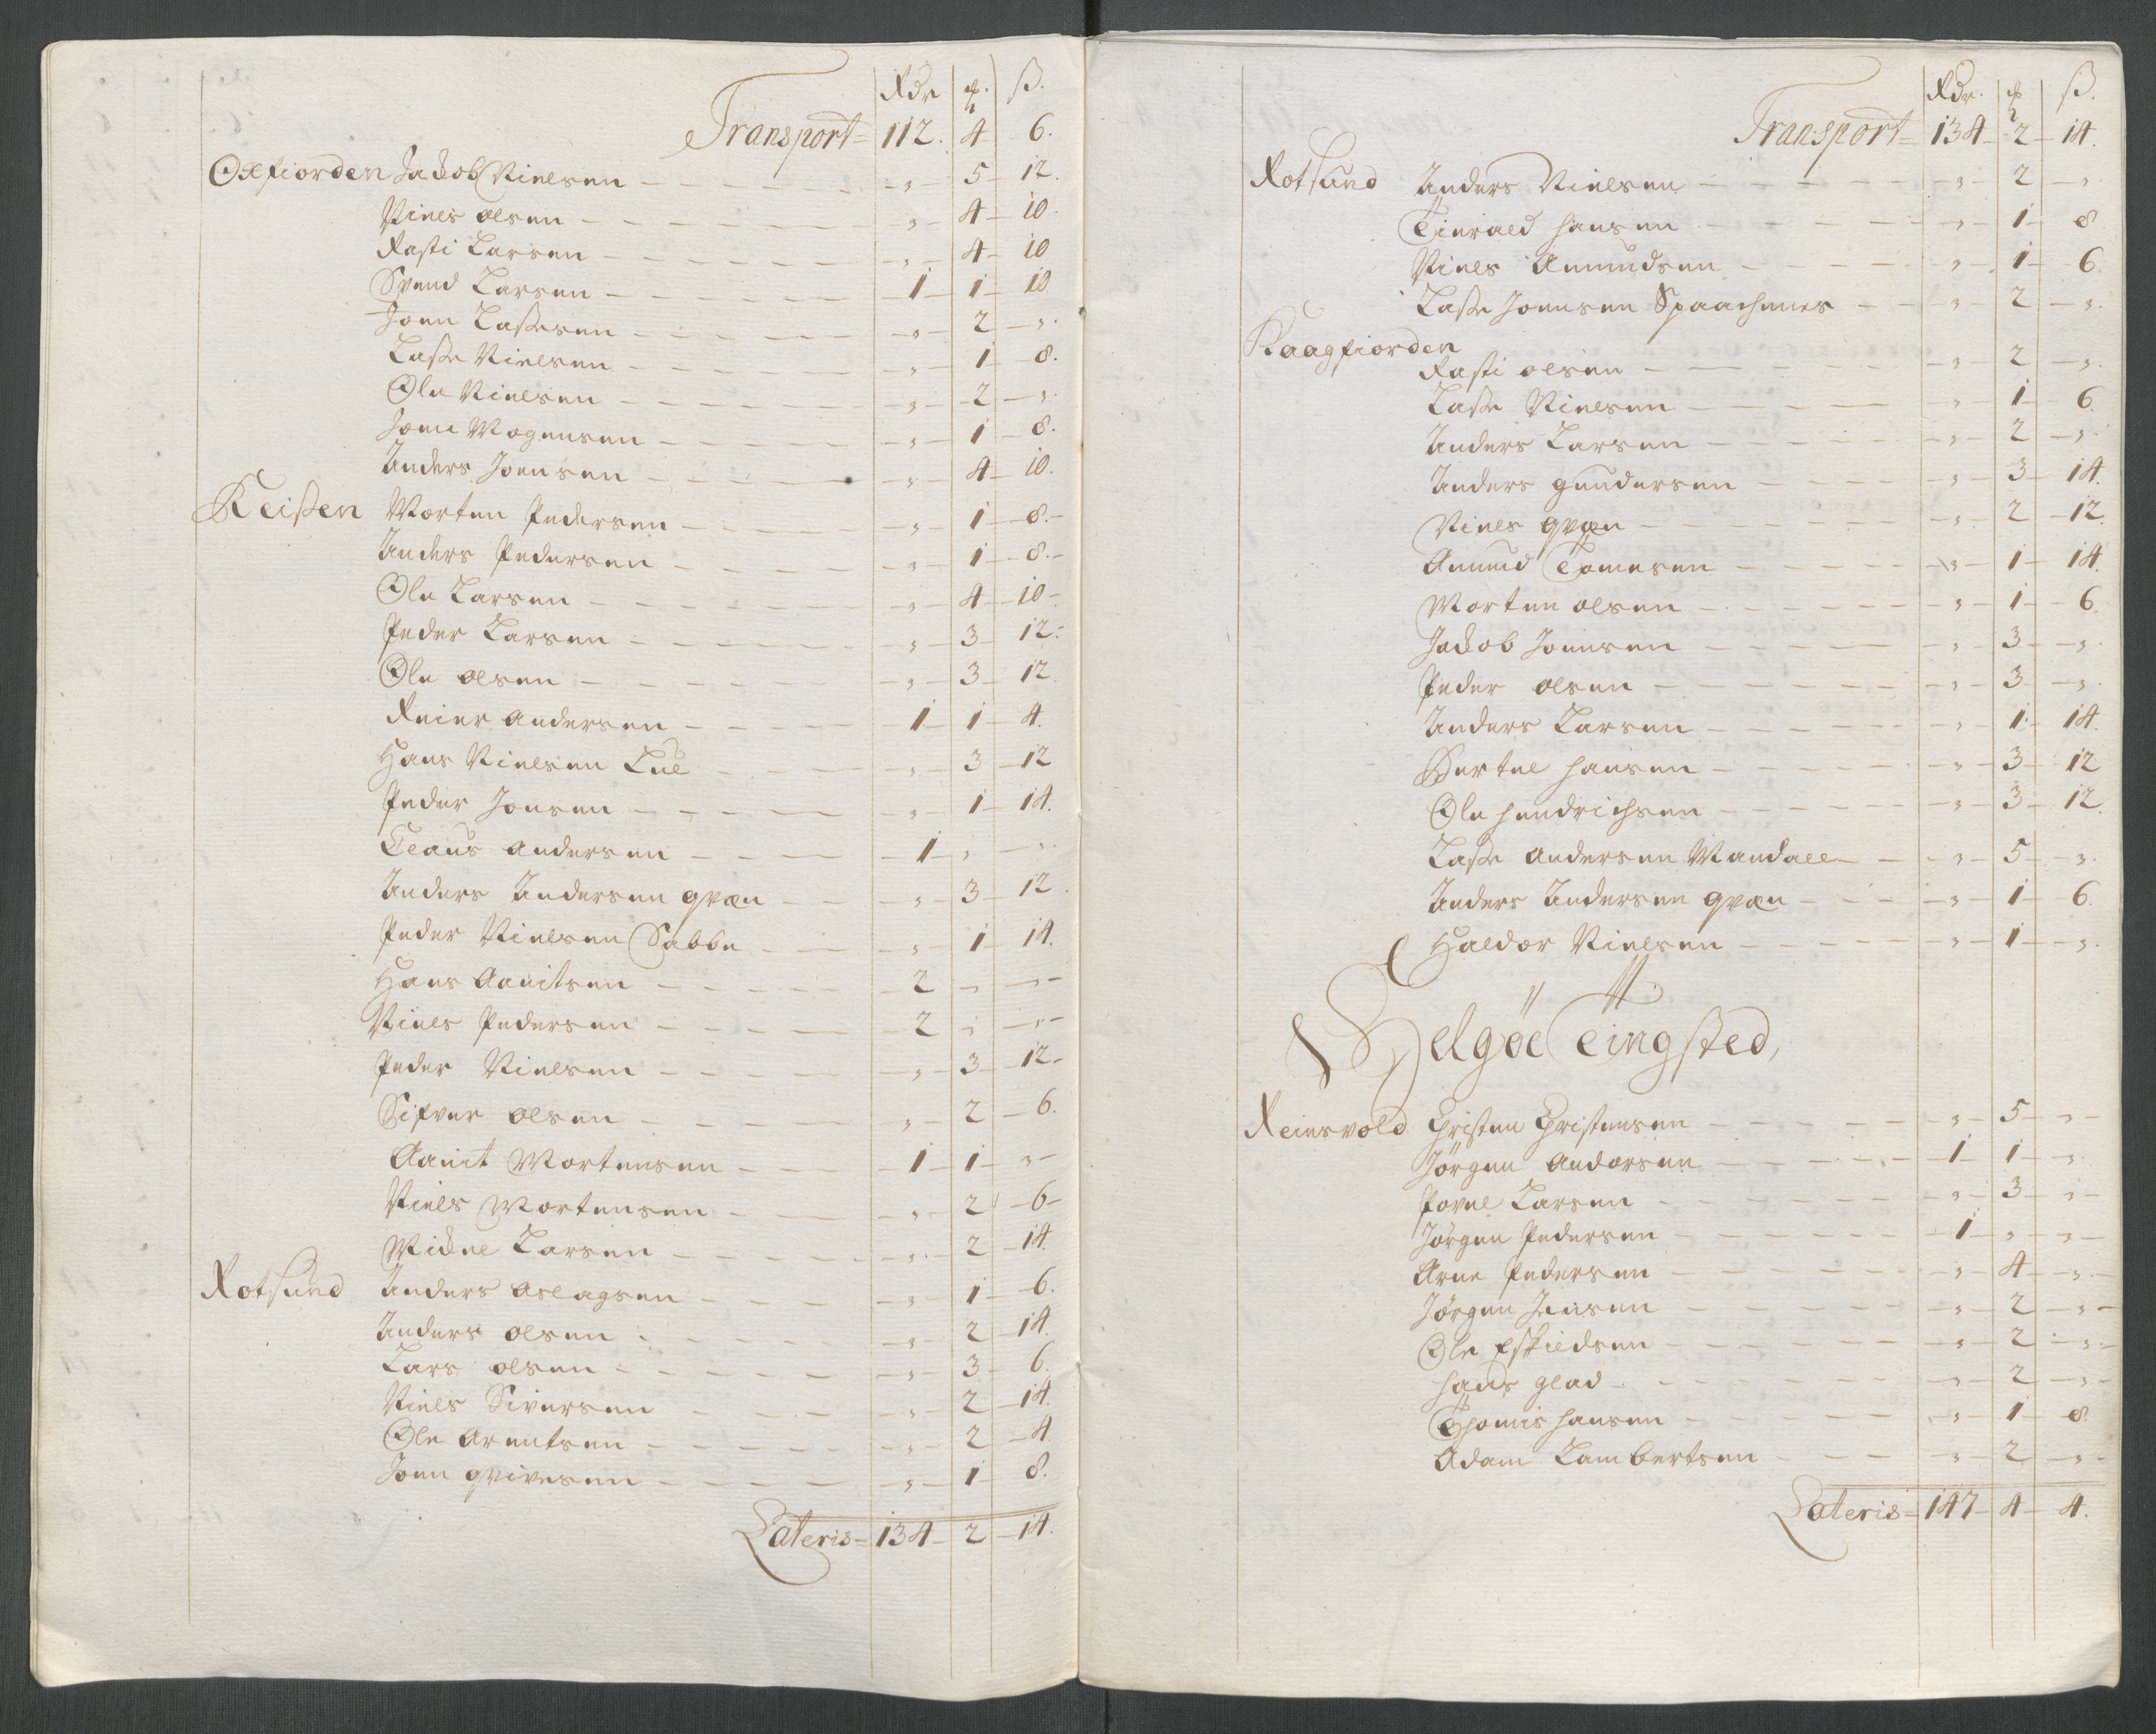 Rdr ß.
Transport= 112. 4 6.
Oxfiorden Jackob Nielsen - " - 5 - 12.
Niels olsen - " - 4 - 10.
Rasti Larsen - " - 4 - 10
Svend Larsen - 1 - 1 - 10
Joen Lassesen - " - 2 - ".
Lasse Nielsen - " - 1 - 8.
Ole Nielsen - " - 2 - ".
Joen Mogensen - " - 1 - 8.
Anders Joensen - " - 4 - 10.
Reisen Morten Pedersen - " - 1 - 8.
Anders Pedersen - " - 1 - 8.
Ole Larsen - " - 4 - 10
Peder Larsen - " - 3 - 12.
Ole olsen - " - 3 - 12
Reier andersen - 1 - 1 - 4.
Hans Nielsen Lul - " - 3 - 12
Peder Jonsen - " - 1 - 14.
Claus andersen - 1 - " - "
Anders Andersen qvæn - " - 3 - 12.
Peder Nielsen Sabbe - " - 1 - 14.
Hans Aanitsen - 2 - " - "
Niels Pedersen - 2 - " - "
Peder Nielsen - " - 3 - 12
Sifver olsen - " - 2 - 6.
Aanit Mortensen - 1 - 1 - "
Niels Mortensen - " - 2 - 6
Mickel Larsen - " - 2 - 14.
Rotsund Anders aslagsen - " - 1 - 6.
Anders olsen - " - 2 - 14.
Lars olsen - " - 3 - 6.
Niels Siversen - " - 2 - 14.
Ole arentsen - " - 2 - 4
Joen qvivesen - " - 1 - 8.
Lateris= 134 - 2 - 14.
Rdr. ß.
Transport= 134 - 2 - 14.
Rotsund Anders Nielsen - " - 2 - ".
Tierald hansen - " - 1 - 8
Niels Amundsen - " - 1 - 6.
Lasse Joensen Spaachenes - " - 2 - ".
Kaagfiorden
Rasti olsen - " - 2 - ".
Lasse Nielsen - " - 1 - 6.
Anders Larsen - " - 2 - ".
Anders gundersen - " - 3 - 14.
Niels qvæn - " - 2 - 12.
Amund Tomesen - " - 1 - 14.
Morten olsen - " - 1 - 6.
Jackob Joensen - " - 3 - ".
Peder olsen - " - 3 - ".
Anders Larsen - " - 1 - 14.
Bertel hansen - " - 3 - 12
Ole hendrichsen - " - 3 - 12.
Lasse andersen Mandall - " - 5 - ".
Anders Andersen qvæn - " - 1 - 6.
Haldor Nielsen - " - 1 - ".
Helgöe Tingsted,
Reinsvold Christen Christensen - " - 5 - "
Jörgen andersen - 1 - 1 - ".
Povel Larsen - " - 3 - "
Jörgen Pedersen - 1 - " - "
Arne Pedersen - " - 4 - ".
Jörgen Jensen - " - 2 - "
Ole Eskildsen - " - 2 - "
hans glad - " - 2 - "
Thomis hansen - " - 1 - 8.
Adam Lambertsen - " - 2 - "
Lateris= 147 - 4 - 4.